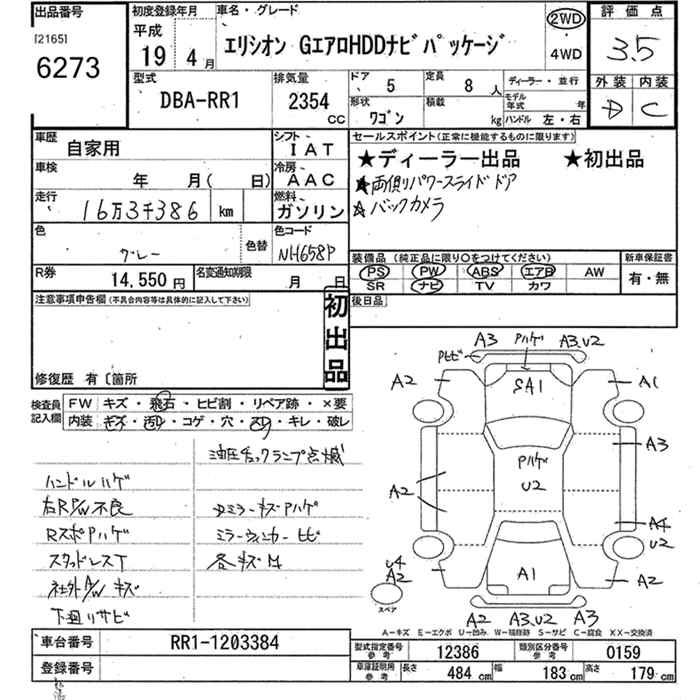 出品番号
[2165]
6273
初度登録年月
平成
19 4月
車名・グレード
エリシオン GエアロHDDナビパッケージ
2WD
・
4WD
評価点
3.5
外装 内装
D C
型式
DBA-RR1
排気量
2354
CC
ドア 5
定員 8人
形状 ワゴン
積載 kg
ディーラー・並行
モデル年式 年
ハンドル 左・右
車歴 自家用
シフト IAT
車検 年 月( 日)
冷房 AAC
走行 16万3千386 km
燃料 ガソリン
色 グレー
色替
色コード NH658P
R券 14,550円
名変通知期限 月 日
セールスポイント(正常に機能するものに限ります)
★ディーラー出品 ★初出品
★両側パワースライドドア
★バックカメラ
装備品(純正品に限り○をつけてください)
PS PW ABS エアB AW
SR ナビ TV カワ
新車保証書
有・無
後日品
注意事項申告欄(不具合内容等は具体的に記入して下さい)
初出品
修復歴 有〔箇所
検査員記入欄
FW キズ・飛石・ヒビ割・リペア跡・×要
内装 キズ・汚れ・コゲ・穴・スレ・キレ・破レ
油圧チェックランプ点滅
ハンドルハゲ
右RP/W不良
DミラーキズPハゲ
RスポPハゲ
ミラーウィンカーヒビ
スタッドレスT
各キズM
社外A/Wキズ
下廻リサビ
A3 Pハゲ A3.U2
Pヒビ
A2 SA1 A1
A3
Pハゲ
U2
A2
A4
U2
U4
A2
A1
A2
スペア
A2 A3.U2 A3
A-キズ E-エクボ U-凹み W-補修跡 S-サビ C-腐食 XX-交換済
車台番号 RR1-1203384
登録番号
型式指定番号 参考 12386
類別区分番号 参考 0159
車庫証明用 参考 長さ 484 cm 幅 183 cm 高さ 179 cm